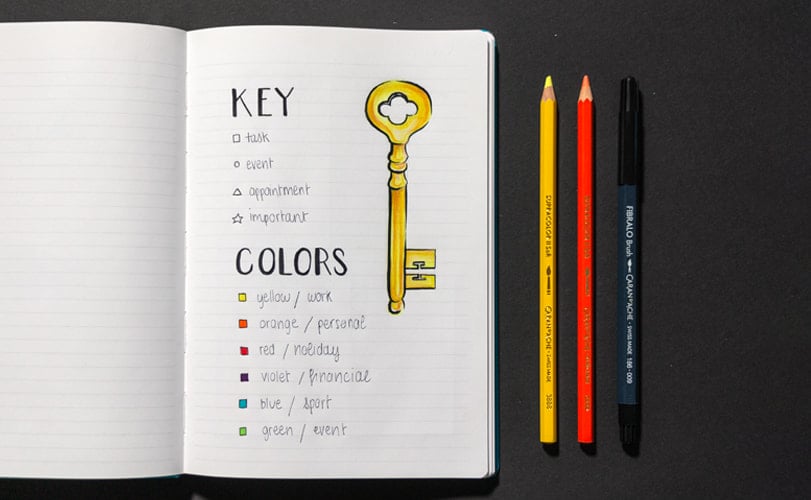 KEY
task
event
appointment
important
COLORS
yellow / work
orange / personal
red / holiday
violet / financial
blue / sport
green / event
SUPRACOLOR II Soft
CARAN D'ACHE
FIBRALO Brush CARAN D'ACHE SWISS MADE 186 - 009